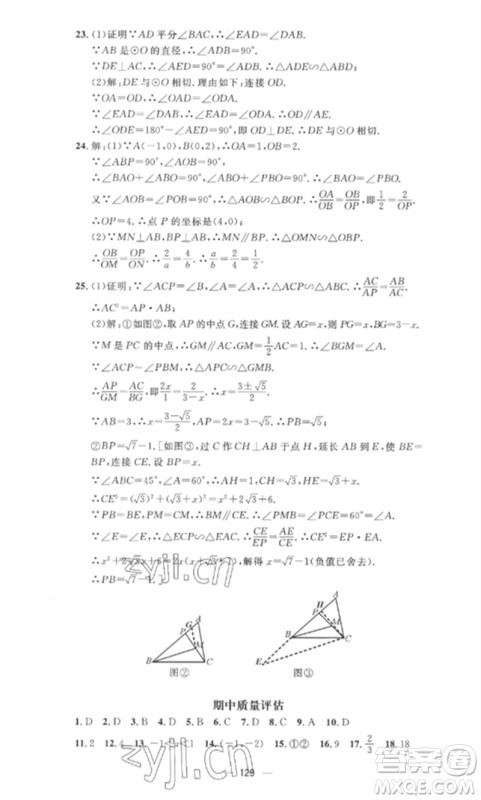 23. (1)证明:∵AD 平分∠BAC,∴∠EAD=∠DAB.
∵AB 是⊙O 的直径,∴∠ADB=90°.
∵DE⊥AC,∴∠AED=90°.∴△ADE∽△ABD.
(2)解:DE 与⊙O 相切.理由如下:连接 OD.
∵OA=OD,∴∠OAD=∠ODA.
∵∠EAD=∠DAB,∴∠EAD=∠ODA.∴OD∥AE.
∴∠ODE=180°-∠AED=90°,即 DE 与⊙O 相切.
24. 解:(1)∵A(-1,0),B(0,2),∴OA=1,OB=2.
∵∠ABP=90°,∴∠ABO+∠PBO=90°.
∵∠BAO+∠ABO=90°,∴∠BAO=∠PBO.
又∵∠AOB=90°,∴△AOB∽△BOP.∴OA/OB=OB/OP,即1/2=2/OP.
∴OP=4.∴点 P 的坐标是(4,0);
(2)∵MN⊥AB,PB⊥AB,∴MN∥PB,∴△OMN∽△OBP.
∴OB/OM=OP/ON.∴2/a=4/b.∴a/b=1/2.
25. (1)证明:∵∠ACP=∠B,∠A=∠A,∴△ACP∽△ABC.∴AC/AP=AB/AC.
∴AC²=AP·AB;
(2)解:①如图②,取 AP 的中点 G,连接 MG,设 AG=x,则 PG=x,BG=3-x.
∵M 是 PC 的中点,∴GM∥AC,GM=1/2 AC=1.∴∠BGM=∠A.
∵∠ACP=∠PBM,∴△APC∽△GMB.
∴AP/GM=AC/BG,即2x/1=2/(3-x).∴x=(3±√5)/2.
∵AB=3,∴AP=3-√5.∴PB=√5;
②BP=√7-1.[如图③,过 C 作 CH⊥AB 于点 H,延长 AB 到 E,使 BE=
∵∠ABC=45°,∠A=60°,∴CH=√3,HE=√3+x.
∴CE²=(√3)²+(√3+x)²=x²+2√3x+6.
∵∠E=∠E,∴△ECP∽△EAC.∴CE/EP=AE/CE.∴CE²=EP·AE.
解得 x=√7-1(负值已舍去).
∴BP=√7-1.]
A
G
P
M
B
C
图②
A
H
P
M
B
C
E
图③
期中质量评估
1. D 2. D 3. D 4. D 5. B 6. C 7. B 8. A 9. D 10. D
11. 2 12. 4 14. (-1,-2) 15. ①② 16. 9 17. 2/3 18. 18
129
zyji.cn
答案圈
MXQE.COM